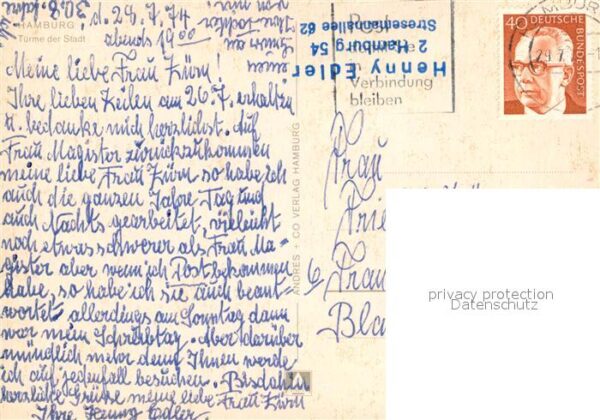 HAMBURG
Türme der Stadt
d. 28.7.74
abends 19 00
Meine liebe Frau Zürn!
Ihre lieben Zeilen am 26.7. erhalten
u. bedanke mich herzlichst. Auf
Frau Magister zurückzukommen
meine liebe Frau Zürn so habe ich
auch die ganzen Jahre Tag und
auch Nachts gearbeitet, vieleicht
noch etwas schwerer als Frau Ma-
gister aber wenn ich Post bekommen
habe, so habe ich sie auch beant-
wortet allerdings am Sonntag dann
war mein Schreibtag. Aber darüber
mündlich mehr denn Ihnen werde
ich auf jedenfall besuchen. Bis dahin
herzliche Grüße meine liebe Frau Zürn
Ihre Henny Edler
Henny Edler
2 Hamburg 54
Stresemannallee 62
Verbindung
bleiben
40
DEUTSCHE BUNDESPOST
ANDRES + CO VERLAG HAMBURG
Frau
Frie
Frau
Bla
privacy protection
Datenschutz